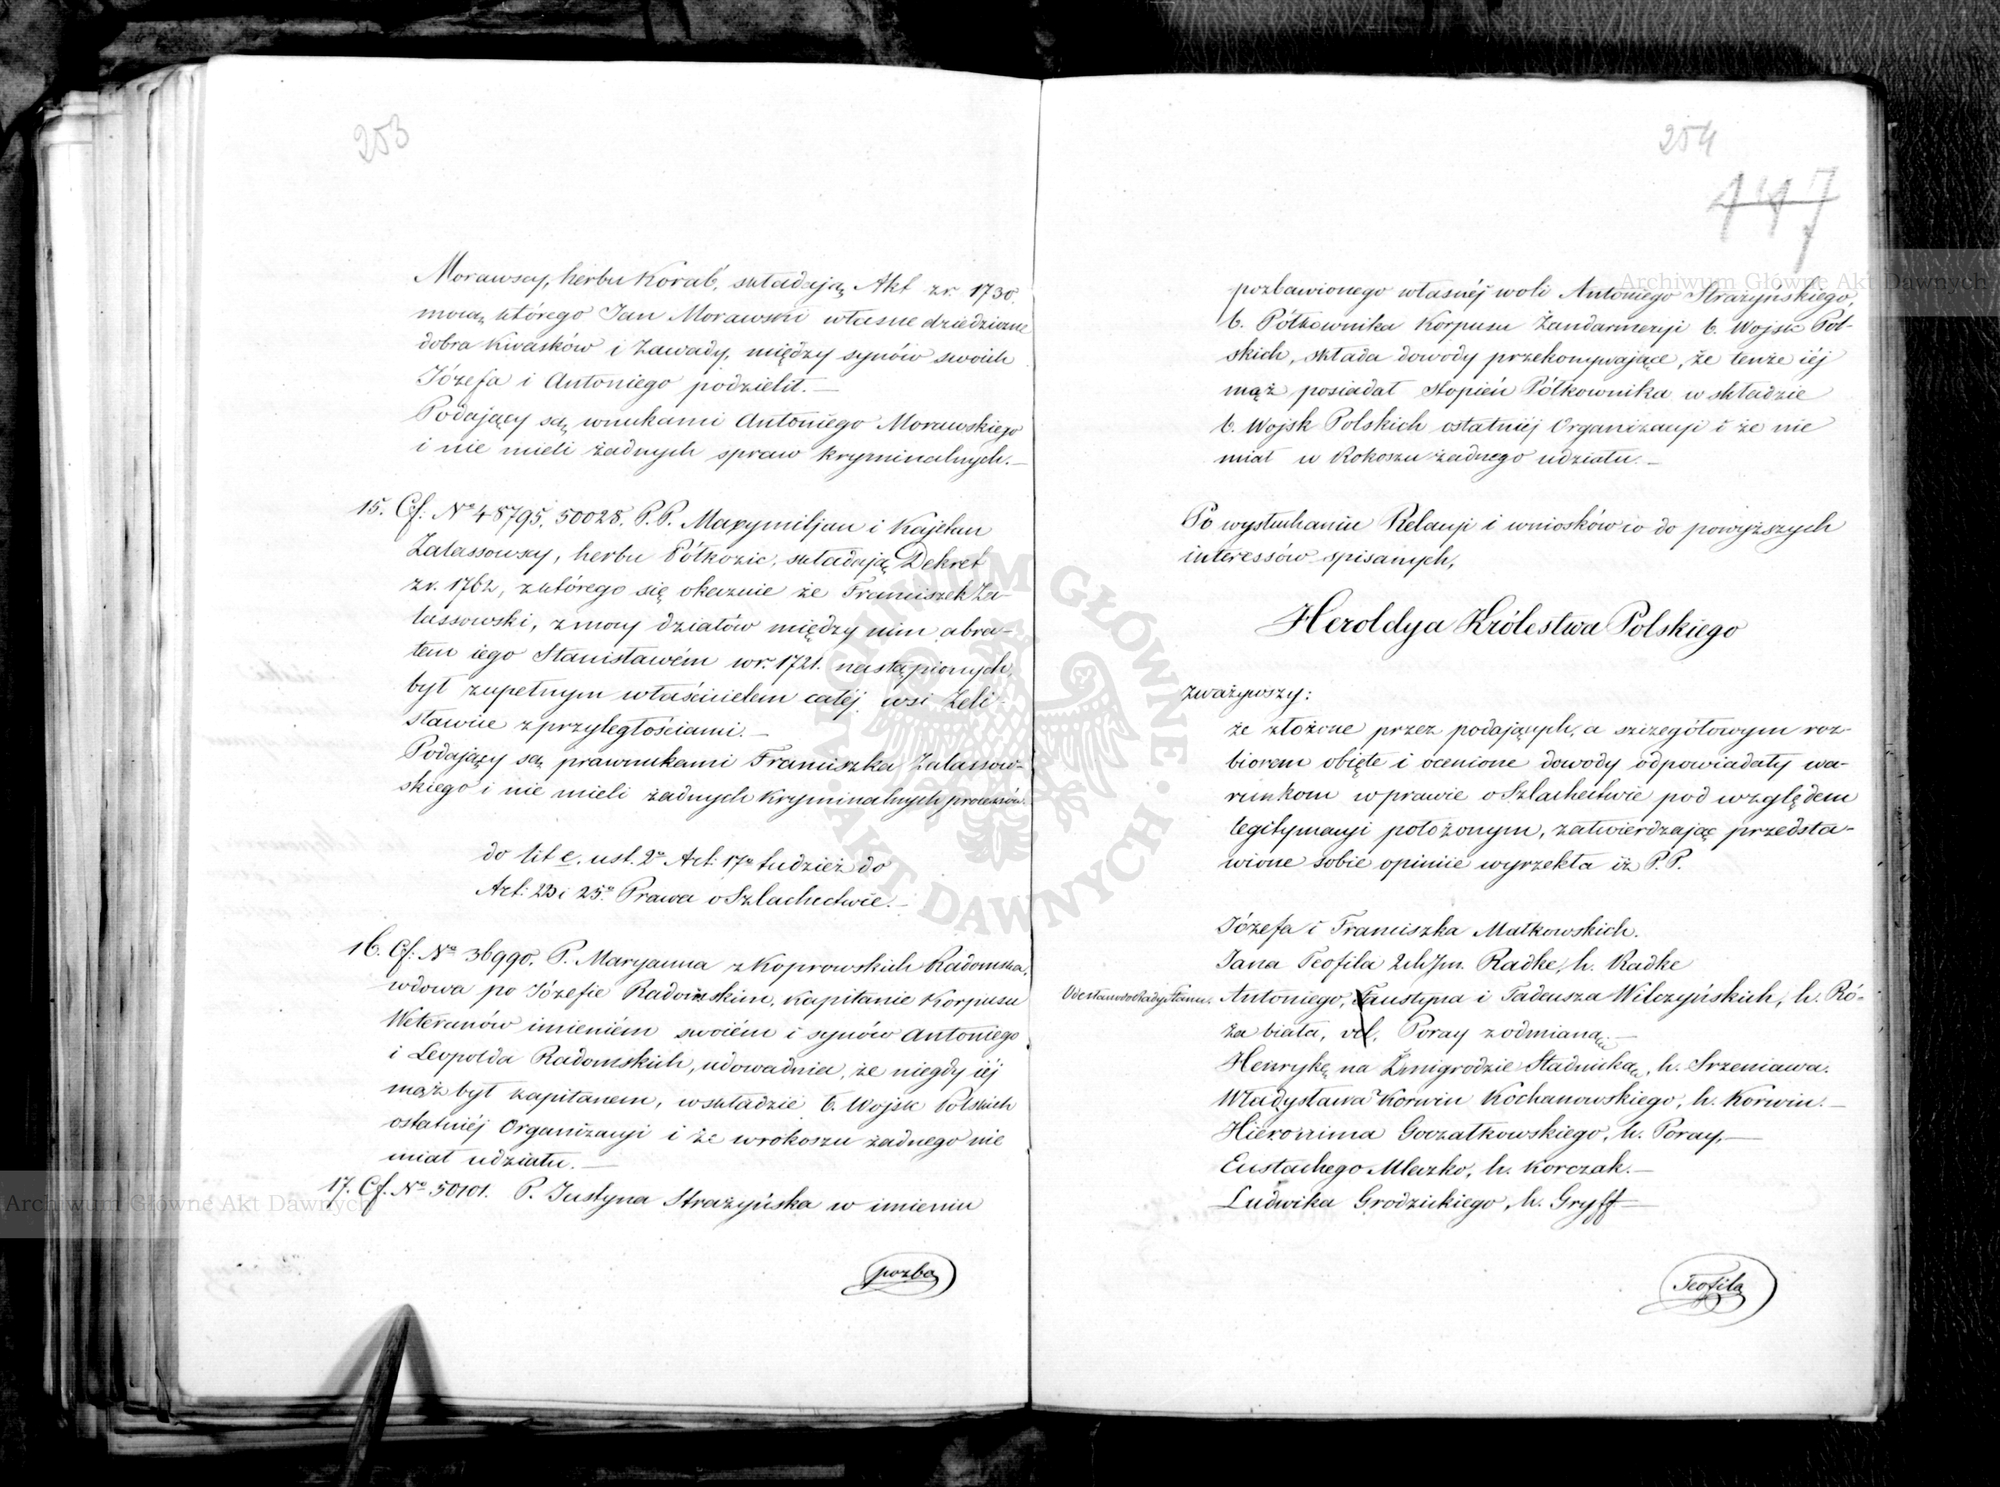 253
Morawscy, herbu Korab', składają Akt z r. 1730.
mocą którego Jan Morawski własne dziedziczne
dobra Kwasków i Zawady, między synów swoich
Józefa i Antoniego podzielił.—
Podający są wnukami Antoniego Morawskiego
i nie mieli żadnych spraw kryminalnych.—
15. Cf: No 48795, 50028. P.P. Maxymiljan i Kajetan
Załassowscy, herbu Półkozic, składają Dekret
z r. 1762, z którego się okazuie że Franciszek Za-
łassowski, z mocy działów między nim a bra-
tem iego Stanisławém w r. 1721. nastąpionych,
był zupełnym właścicielem całéj wsi Żeli-
sławice z przyległościami.—
Podający są prawnukami Franciszka Załassow-
skiego i nie mieli żadnych kryminalnych processów.
do lit e. ust. 2o Art: 17o tudzież do
Art: 23 i 25o Prawa o Szlachectwie.—
16. Cf: No 36990. P. Maryanna z Koprowskich Radomska,
wdowa po Józefie Radomskim, Kapitanie Korpusu
Weteranów imieniém swoiém i synów Antoniego
i Leopolda Radomskich, udowadnia, że niegdy iéj
mąż był kapitanem, w składzie b. Wojsk Polskich
ostatniéj Organizacyi i że w rokoszu żadnego nie
miał udziału.—
17. Cf. No 50101. P. Justyna Strażyńska w imieniu
pozba
254
447
pozbawionego własnéj woli Antoniego Strażyńskiego,
b. Półkownika Korpusu Żandarmeryi b. Wojsk Pol-
skich, składa dowody przekonywające, że tenże iéj
mąż posiadał stopień Półkownika w składzie
b. Wojsk Polskich ostatniéj Organizacyi i że nie
miał w Rokoszu żadnego udziału.—
Po wysłuchaniu Relacyi i wniosków co do powyższych
interessów spisanych,
Heroldya Królestwa Polskiego
zważywszy:
że złożone przez podających, a szczegółowym roz-
biorem obięte i ocenione dowody odpowiadały wa-
runkom w prawie o Szlachectwie pod względem
legitymacyi położonym, zatwierdzając przedsta-
wione sobie opiniie wyrzekła iż P.P.
Józefa i Franciszka Małkowskich.
Jana Teofila 2ch Im. Radke, h. Radke
Antoniego, Faustyna i Tadeusza Wilczyńskich, h. Ró-
ża biała, vel, Poray z odmianą.—
Henrykę na Żmigrodzie Stadnicką, h. Srzeniawa.
Władysława Korwin Kochanowskiego, h. Korwin.—
Hieronima Goczałkowskiego, h. Poray.—
Eustachego Mleczko, h. Korczak.—
Ludwika Grodzickiego, h. Gryff—
Teofila
Archiwum Główne Akt Dawnych
Archiwum Główne Akt Dawnych
ARCHIWUM GŁÓWNE AKT DAWNYCH